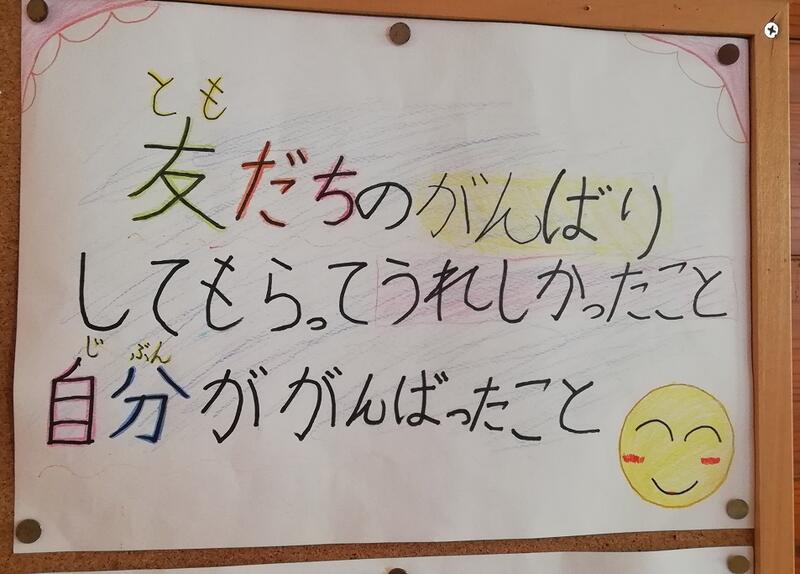 とも
友だちのがんばり
してもらってうれしかったこと
じ ぶん
自分ががんばったこと